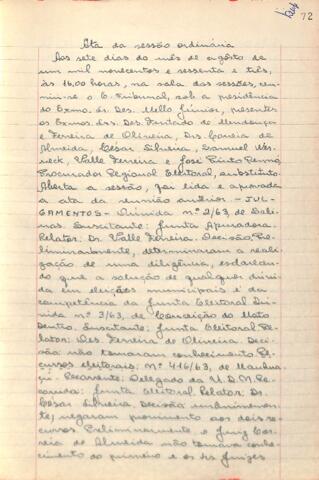 72
Ata da sessão ordinária
Aos sete dias do mês de agôsto de
um mil novecentos e sessenta e três,
às 16,00 horas, na sala das sessões, reu-
niu-se o E. Tribunal, sob a presidência
do Exmo. Sr. Des. Mello Júnior, presentes
os Exmos. Srs. Des. Furtado de Mendonça
e Ferreira de Oliveira, Drs. Correia de
Almeida, César Silveira, Samuel Wer-
neck, Valle Ferreira e José Pinto Renno,
Procurador Regional Eleitoral, substituto.
Aberta a sessão, foi lida e aprovada
a ata da reunião anterior - JUL-
GAMENTOS - Dúvida nº 2/63, de Sali-
nas. Suscitante: Junta Apuradora.
Relator: Dr. Valle Ferreira. Decisão: Pre-
liminarmente, determinaram a reali-
zação de uma diligência, esclarecen-
do que a solução de qualquer dúvida
em eleições municipais é da
competência da Junta Eleitoral. Dú-
vida nº 3/63, de Conceição do Mato
Dentro. Suscitante: Junta Eleitoral. Re-
lator: Des. Ferreira de Oliveira. Deci-
são: não tomaram conhecimento. Re-
cursos eleitorais: Nº 416/63, de Manhua-
çu. Recorrente: Delegado da U.D.N. Re-
corrida: Junta Eleitoral. Relator: Dr.
César Silveira. Decisão: unânimemen-
te, negaram provimento aos dois re-
cursos. Preliminarmente o Juiz Cor-
reia de Almeida não tomava conhe-
cimento do primeiro e os Srs. Juízes